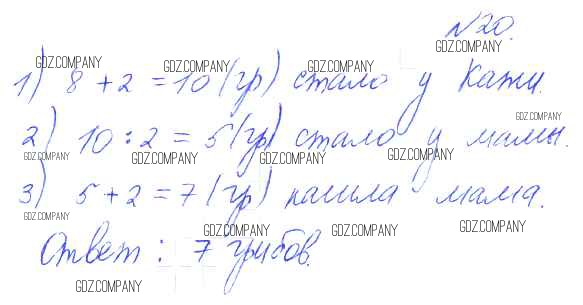 №20.
1) 8 + 2 = 10 (гр) стало у Кати.
2) 10 : 2 = 5 (гр) стало у мамы.
3) 5 + 2 = 7 (гр) нашла мама.
Ответ: 7 грибов.
GDZ.COMPANY
GDZ.COMPANY
GDZ.COMPANY
GDZ.COMPANY
GDZ.COMPANY
GDZ.COMPANY
GDZ.COMPANY
GDZ.COMPANY
GDZ.COMPANY
GDZ.COMPANY
GDZ.COMPANY
GDZ.COMPANY
GDZ.COMPANY